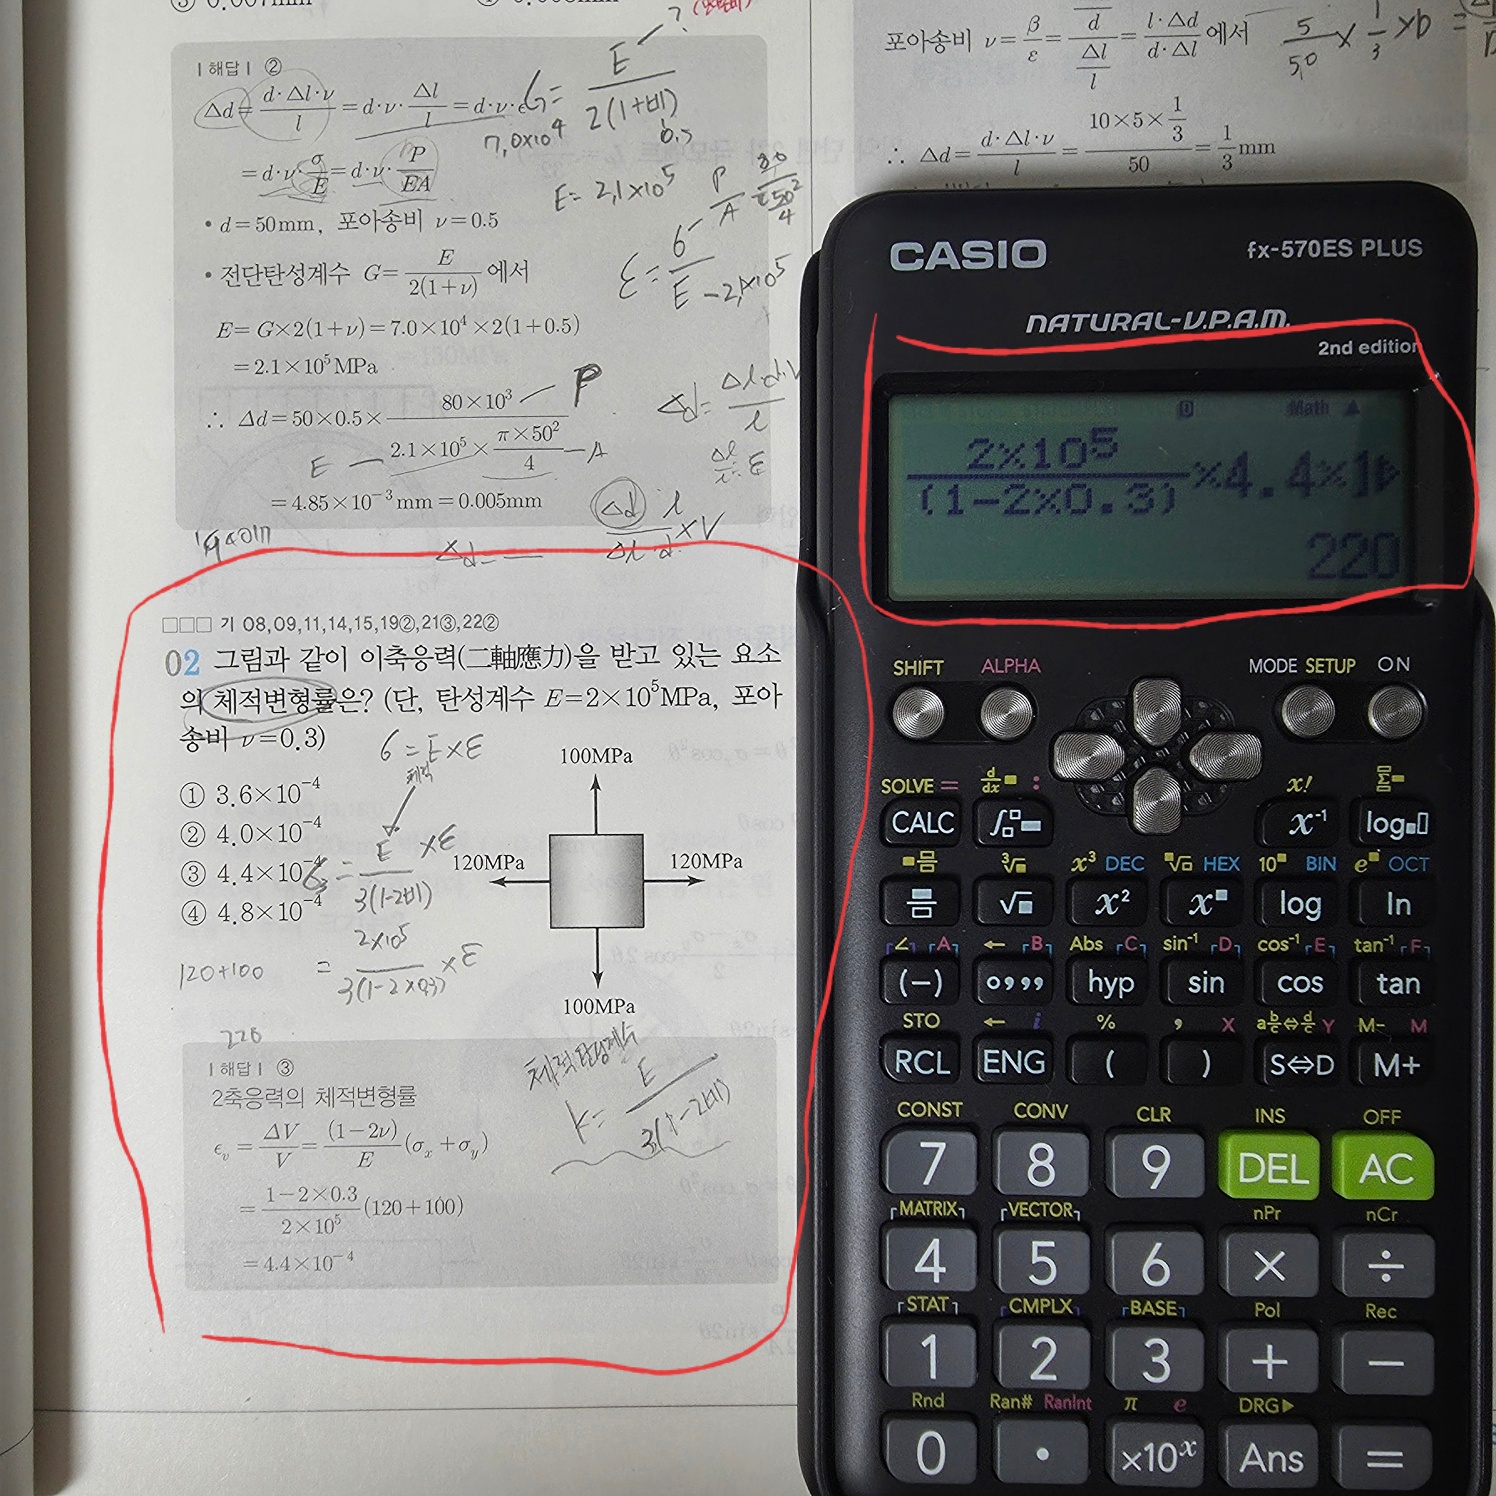 ③ 0.007mm
| 해답 | ②
Δd = d·Δl·ν / l = d·ν· Δl / l = d·ν·ϵ
= d·ν· σ / E = d·ν· P / EA
• d=50mm, 포아송비 ν=0.5
• 전단탄성계수 G= E / 2(1+ν) 에서
E=G×2(1+ν)=7.0×10⁴×2(1+0.5)
=2.1×10⁵MPa
∴ Δd=50×0.5× 80×10³ / 2.1×10⁵× π×50² / 4
=4.85×10⁻³mm=0.005mm
G= E / 2(1+비)
7,0x10⁴
0.5
E= 2,1x10⁵
P / A
ε= 6 / E
-2,1x10⁵
P
E
A
Δd= Δl.d.V / l
Δl / l = ε
Δd l / Δl d ×V
Δd=
포아송비 ν= β / ε = d / Δl / l = l·Δd / d·Δl 에서
5 / 50 × 1 / 3 ×D =
∴ Δd= d·Δl·ν / l = 10×5× 1/3 / 50 = 1/3 mm
□□□ 기 08,09,11,14,15,19②,21③,22②
02 그림과 같이 이축응력(二軸應力)을 받고 있는 요소
의 체적변형률은? (단, 탄성계수 E=2×10⁵MPa, 포아
송비 ν=0.3)
① 3.6×10⁻⁴
② 4.0×10⁻⁴
③ 4.4×10⁻⁴
④ 4.8×10⁻⁴
6=E×ε
체적
6= E / 3(1-2비) ×ε
= 2x10⁵ / 3(1-2×0.3) ×ε
120+100
220
100MPa
120MPa
120MPa
100MPa
체적탄성계수
k= E / 3(1-2비)
| 해답 | ③
2축응력의 체적변형률
ϵᵥ = ΔV / V = (1−2ν) / E (σₓ+σᵧ)
= 1−2×0.3 / 2×10⁵ (120+100)
=4.4×10⁻⁴
CASIO
fx-570ES PLUS
NATURAL-V.P.A.M.
2nd edition
D Math ▲
2×10⁵ / (1−2×0.3) ×4.4×1▶
220
SHIFT ALPHA MODE SETUP ON
SOLVE = d/dx■ : x! Σ■
CALC ∫ x⁻¹ log
³√■ x³ DEC ■√□ HEX 10■ BIN e■ OCT
√■ x² x■ log ln
∠ A ← B Abs C sin⁻¹ D cos⁻¹ E tan⁻¹ F
(−) °,,, hyp sin cos tan
STO ← i % , X a b/c⇔d/c Y M− M
RCL ENG ( ) S⇔D M+
CONST CONV CLR INS OFF
7 8 9 DEL AC
MATRIX VECTOR nPr nCr
4 5 6 × ÷
STAT CMPLX BASE Pol Rec
1 2 3 + −
Rnd Ran# RanInt π e DRG▶
0 · ×10ˣ Ans =